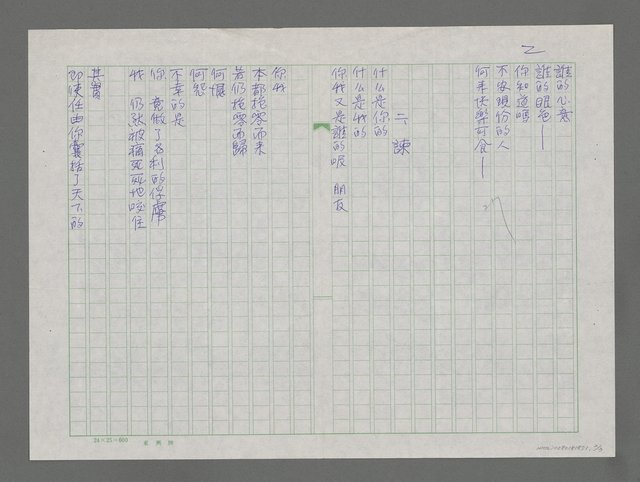 2
誰的心意
誰的眼色—
你知道嗎
份的人
何來快樂可食—
諫
什么是你的
什么是我的
你我又是誰的呢 朋友
你我
本都抱零而來
若仍抱零而歸
何懼
何怨
不幸的是
你 竟做了名利的俘虜
我 仍就被痛死死地咬住
其實
即使任由你囊括了天下的
24×25=600